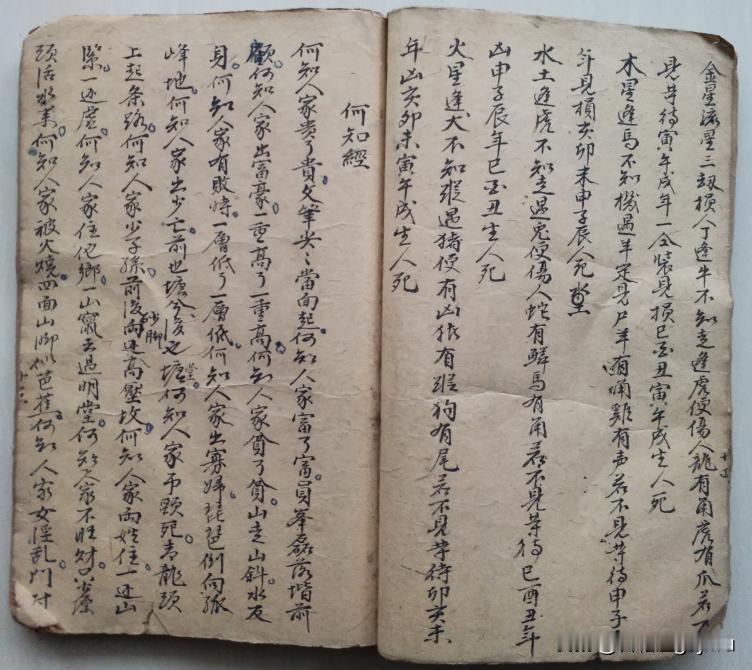 金星流星三刼損人丁逢牛不知走逢虎便傷人龍有角虎有爪若不
見等待寅午戌年一全裝見損巳酉丑寅午戌生人死
木星逢馬不知機過羊定見尸羊有角雞有声若不見等待申子
年見損亥卯未申子辰人死
水土逢虎不知走過兎便傷人蛇有鱗馬有角若不見等待巳酉丑年
凶申子辰年巳酉丑生人死
火星逢犬不知蹤遇猪便有凶猴有蹤狗有尾若不見等待卯亥未
年凶亥卯未寅午戌生人死
何知經
何知人家貴了貴文筆尖々當面起何知人家富了富員峯磊落皆前
顧何知人家出富豪一重高了一重高何知人家貧了貧山走山斜水反
身何知人家有敗時一層低了一層低何知人家出寡婦琵琶倒向孤
峰地何知人家出少亡前也塘兮後也塘何知人家吊頸死青龍頭
砂脚
堂
上起条路何知人家少子孫前後兩边高壓坟何知人家兩姓住一边山
一边虚何知人家住他鄉一山竄去過明堂何知人家不旺財只少源
頭活水来何知人家被火燒四面山脚似芭蕉何知人家女淫乱門对
十六